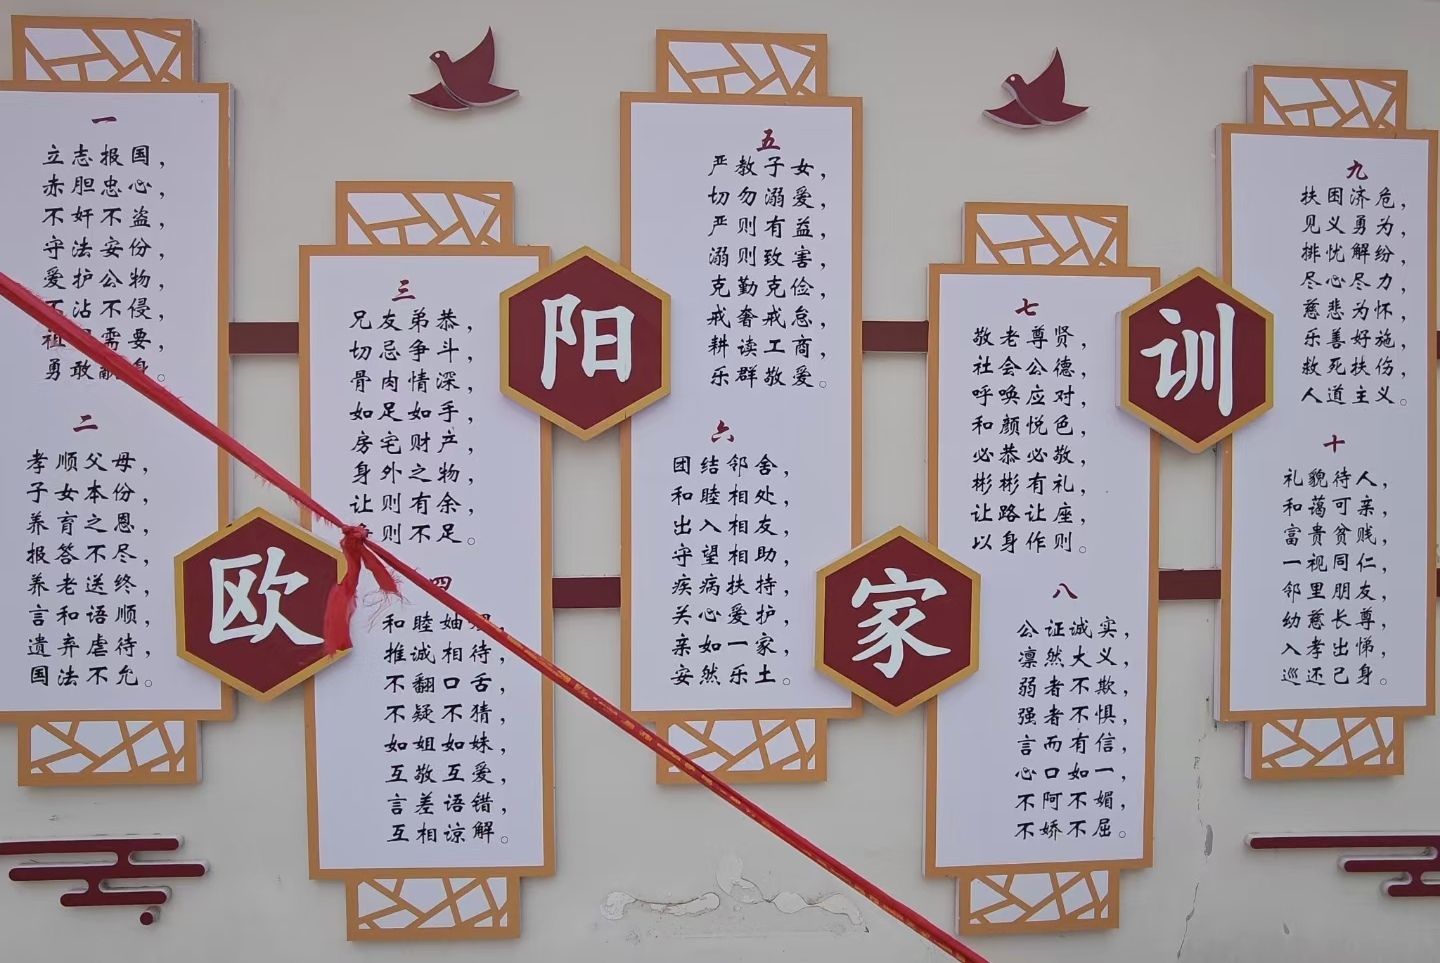 一
立志报国，
赤胆忠心，
不奸不盗，
守法安份，
爱护公物，
不沾不侵，
祖国需要，
勇敢献身。
二
孝顺父母，
子女本份，
养育之恩，
报答不尽，
养老送终，
言和语顺，
遗弃虐待，
国法不允。
欧
三
兄友弟恭，
切忌争斗，
骨肉情深，
如足如手，
房宅财产，
身外之物，
让则有余，
则不足。
四
和睦妯
推诚相待，
不翻口舌，
不疑不猜，
如姐如妹，
互敬互爱，
言差语错，
互相谅解。
阳
五
严教子女，
切勿溺爱，
严则有益，
溺则致害，
克勤克俭，
戒奢戒怠，
耕读工商，
乐群敬爱。
六
团结邻舍，
和睦相处，
出入相友，
守望相助，
疾病扶持，
关心爱护，
亲如一家，
安然乐土。
家
七
敬老尊贤，
社会公德，
呼唤应对，
和颜悦色，
必恭必敬，
彬彬有礼，
让路让座，
以身作则。
八
公证诚实，
凛然大义，
弱者不欺，
强者不惧，
言而有信，
心口如一，
不阿不媚，
不娇不屈。
训
九
扶困济危，
见义勇为，
排忧解纷，
尽心尽力，
慈悲为怀，
乐善好施，
救死扶伤，
人道主义。
十
礼貌待人，
和蔼可亲，
富贵贫贱，
一视同仁，
邻里朋友，
幼慈长尊，
入孝出悌，
巡还己身。